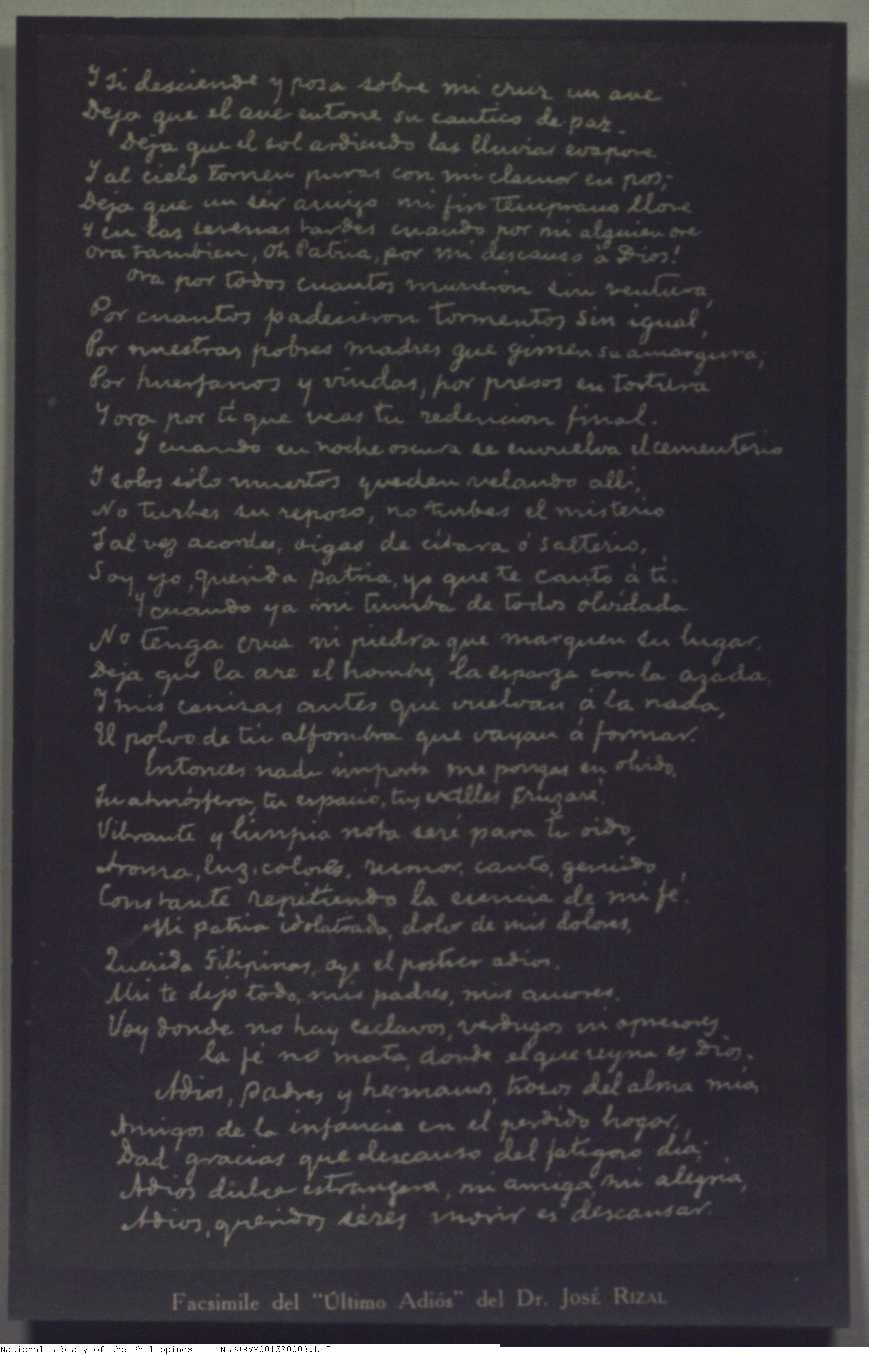 Y si desciende y posa sobre mi cruz un ave
Deja que el ave entone su cantico de paz.
Deja que el sol ardiendo las lluvias evapore
Y al cielo tornen puras con mi clamor en pos;
Deja que un sér amigo mi fin temprano llore
Y en las serenas tardes cuando por mi alguien ore
Ora tambien, Oh Patria, por mi descanso á Dios!
Ora por todos cuantos murieron sin ventura,
Por cuantos padecieron tormentos sin igual,
Por nuestras pobres madres que gimen su amargura;
Por huerfanos y viudas, por presos en tortura
Y ora por ti que veas tu redencion final.
Y cuando en noche oscura se envuelva el cementerio
Y solos sólo muertos queden velando allí,
No turbes su reposo, no turbes el misterio
Tal vez acordes, oigas de cítara ó salterio,
Soy yo, querida patria, yo que te canto á ti.
Y cuando ya mi tumba de todos olvidada
No tenga cruz ni piedra que marquen su lugar,
Deja que la are el hombre, la esparza con la azada,
Y mis cenizas antes que vuelvan á la nada,
El polvo de tu alfombra que vayan á formar.
Entonces nada importa me pongas en olvido,
Tu atmósfera, tu espacio, tus valles cruzaré.
Vibrante y limpia nota seré para tu oido,
Aroma, luz, colores, rumor, canto, gemido
Constante repitiendo la esencia de mi fé.
Mi patria idolatrada, dolor de mis dolores,
Querida Filipinas, oye el postrer adios.
Ahi te dejo todo, mis padres, mis amores.
Voy donde no hay esclavos, verdugos ni opresores
la fé no mata, donde el que reyna es Dios.
Adios, padres y hermanos, trozos del alma mia,
Amigos de la infancia en el perdido hogar,
Dad gracias que descanso del fatigoso día;
Adios dulce estrangera, mi amiga, mi alegria,
Adios, queridos séres morir es descansar.
Facsimile del "Último Adiós" del Dr. JOSÉ RIZAL
National Library of the Philippines